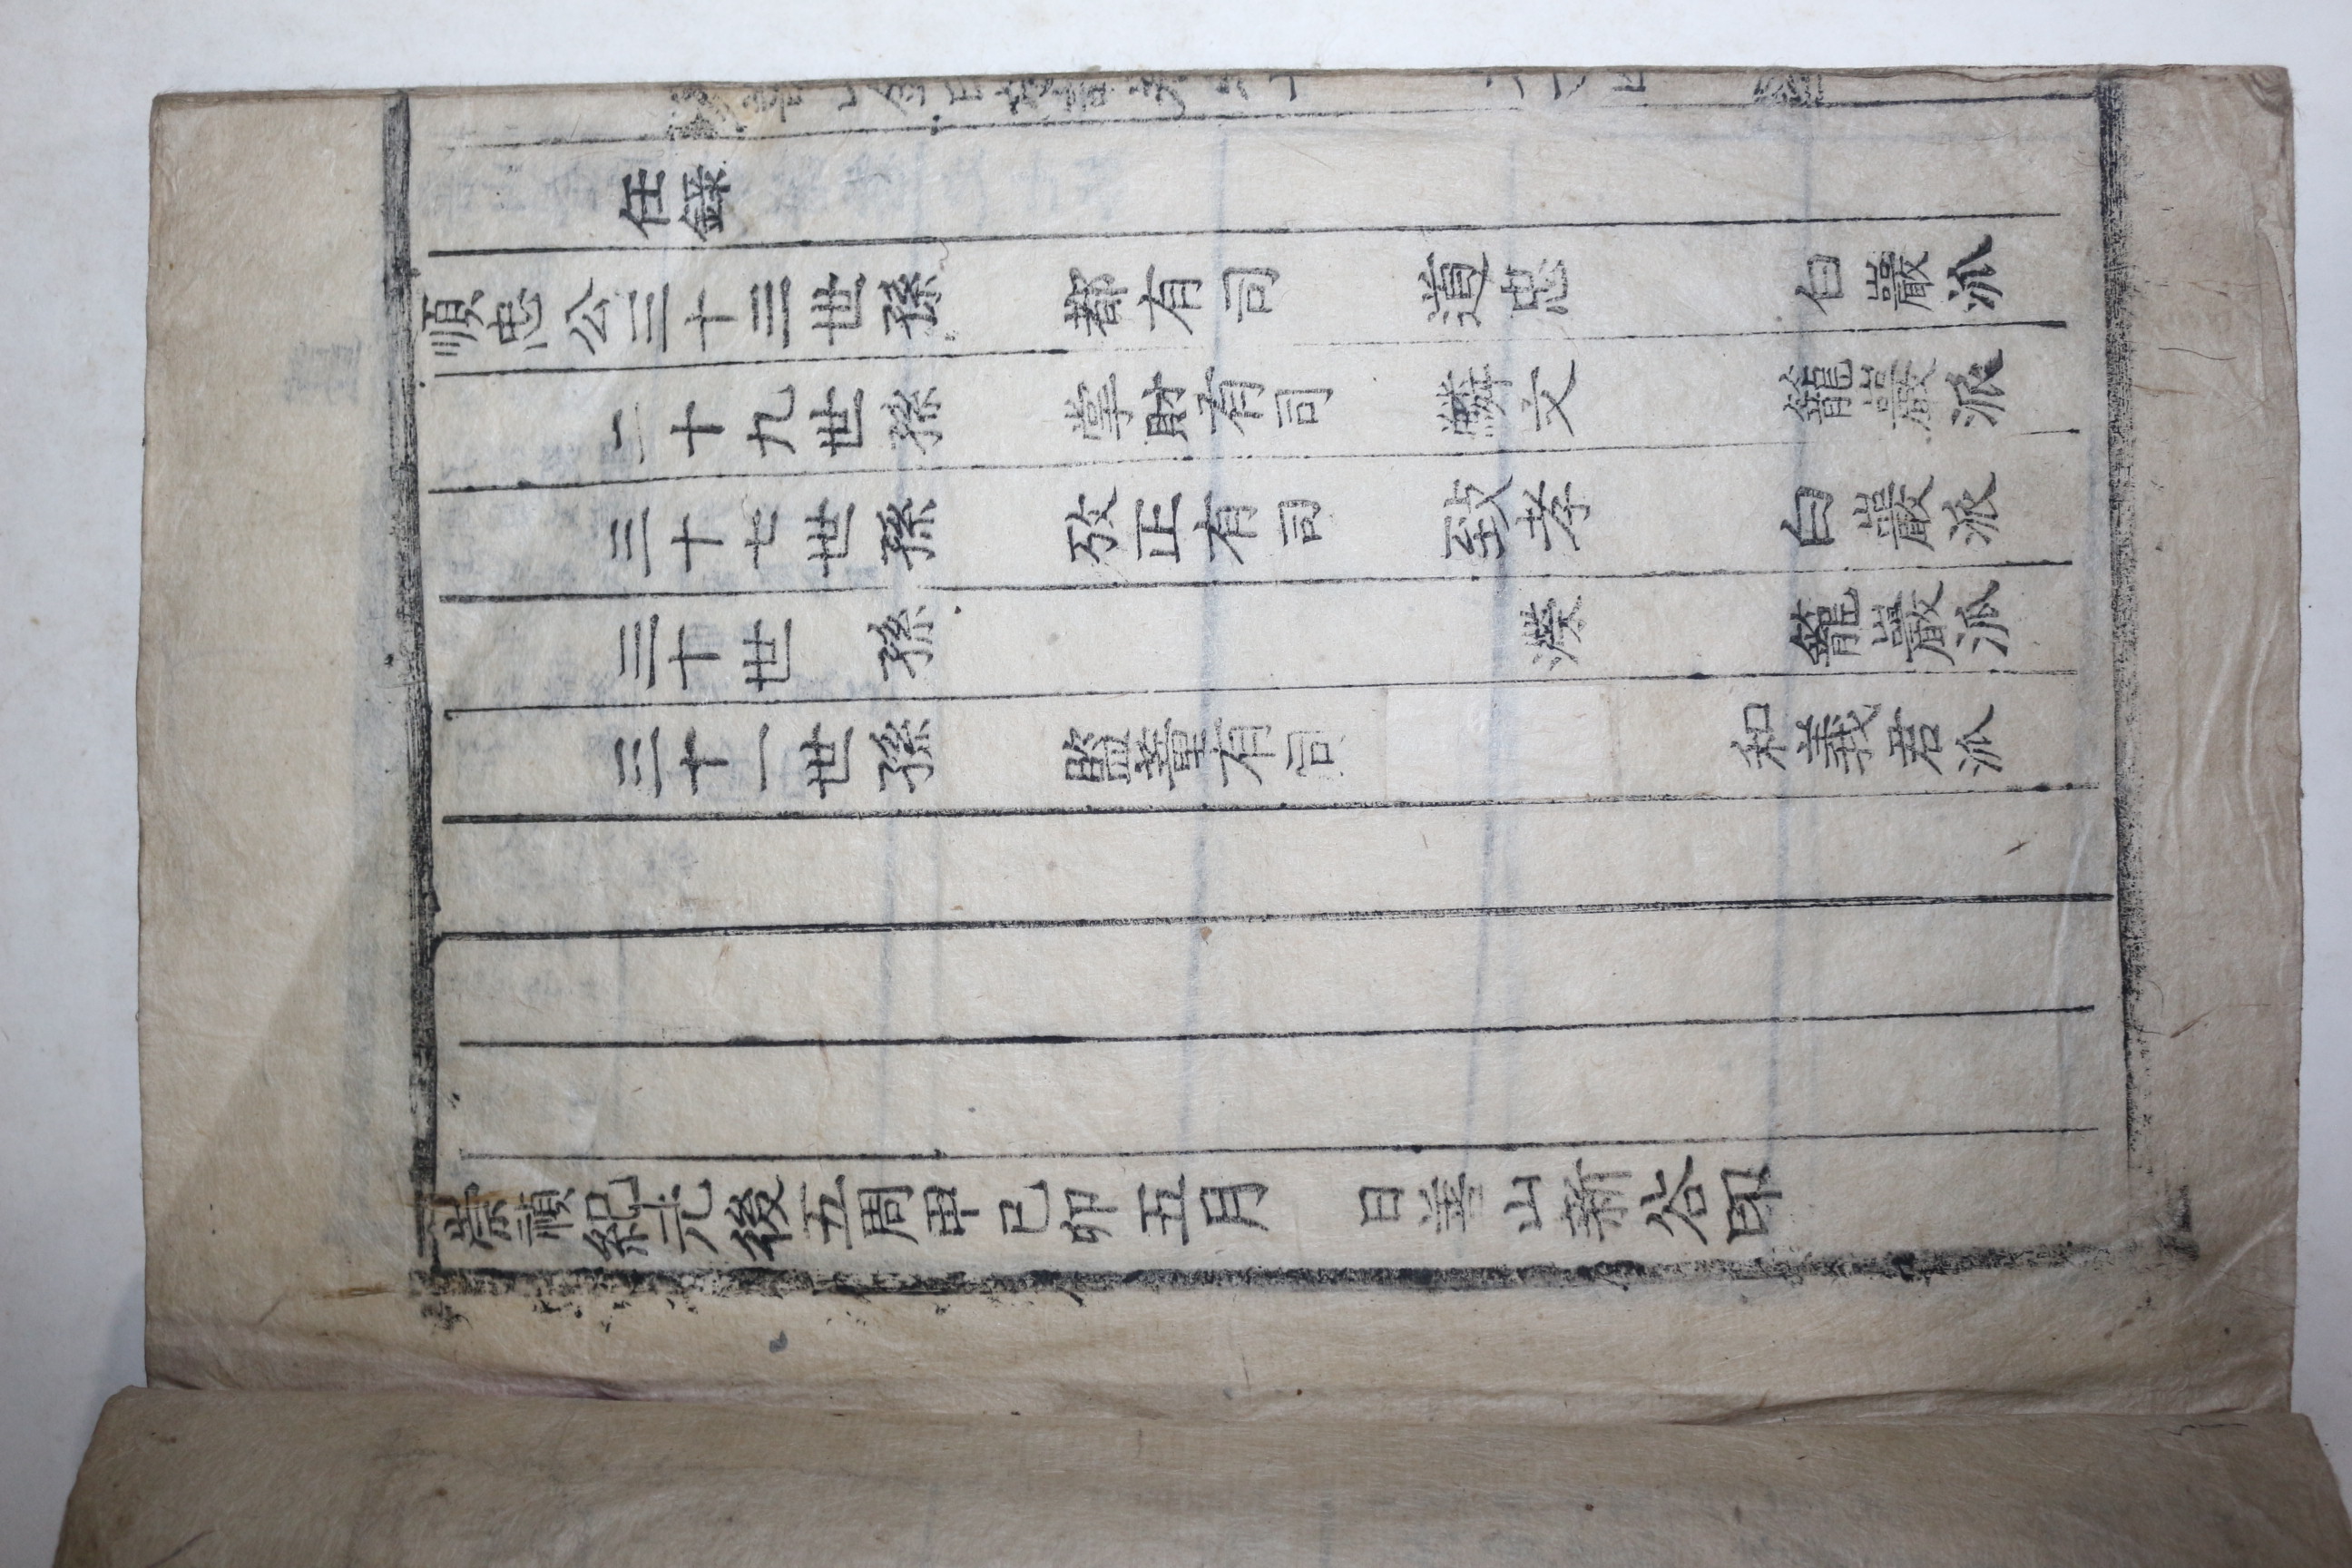 任錄
順忠公三十三世孫 都有司 道忠 白巖派
二十九世孫 掌財有司 鱗文 籠巖派
三十七世孫 攷正有司 致孝 白巖派
三十世 孫 濼 籠巖派
三十一世孫 監董有司 和義君派
崇禎紀元後五周甲己卯五月 日善山新谷印